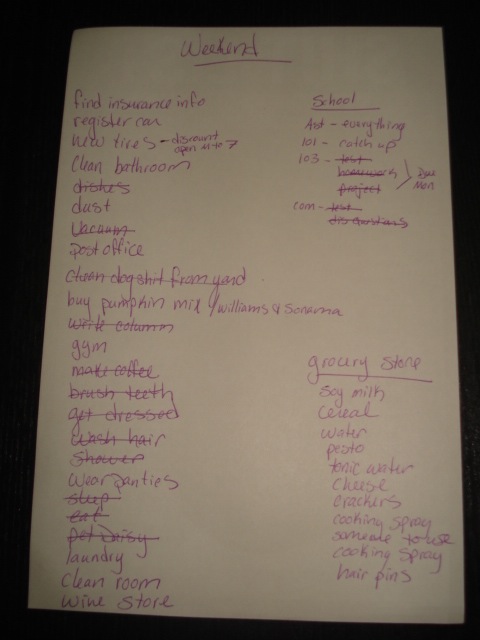 Weekend
find insurance info
register car
new tires - discount
open til 7
clean bathroom
dishes
dust
vacuum
post office
clean dogshit from yard
buy pumpkin mix / williams & sonoma
write column
gym
make coffee
brush teeth
get dressed
wash hair
shower
wear panties
sleep
eat
pet Daisy
laundry
clean room
wine store
School
- everything
101 - catch up
103 - test
homework
project
Due
Mon
com - test
discussions
grocery store
soy milk
cereal
water
pesto
tonic water
cheese
crackers
cooking spray
someone to use
cooking spray
hair pins